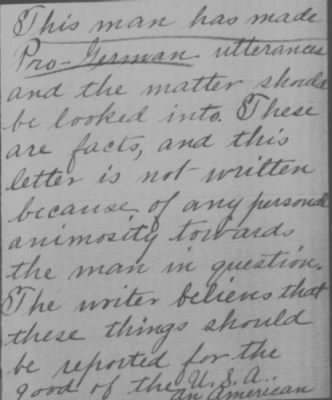 This man has made
Pro-German utterances
and the matter should
be looked into. These
are facts, and this
letter is not written
because of any personal
animosity towards
the man in question.
The writer believes that
these things should
be reported for the
good of the U.S.A..
an American